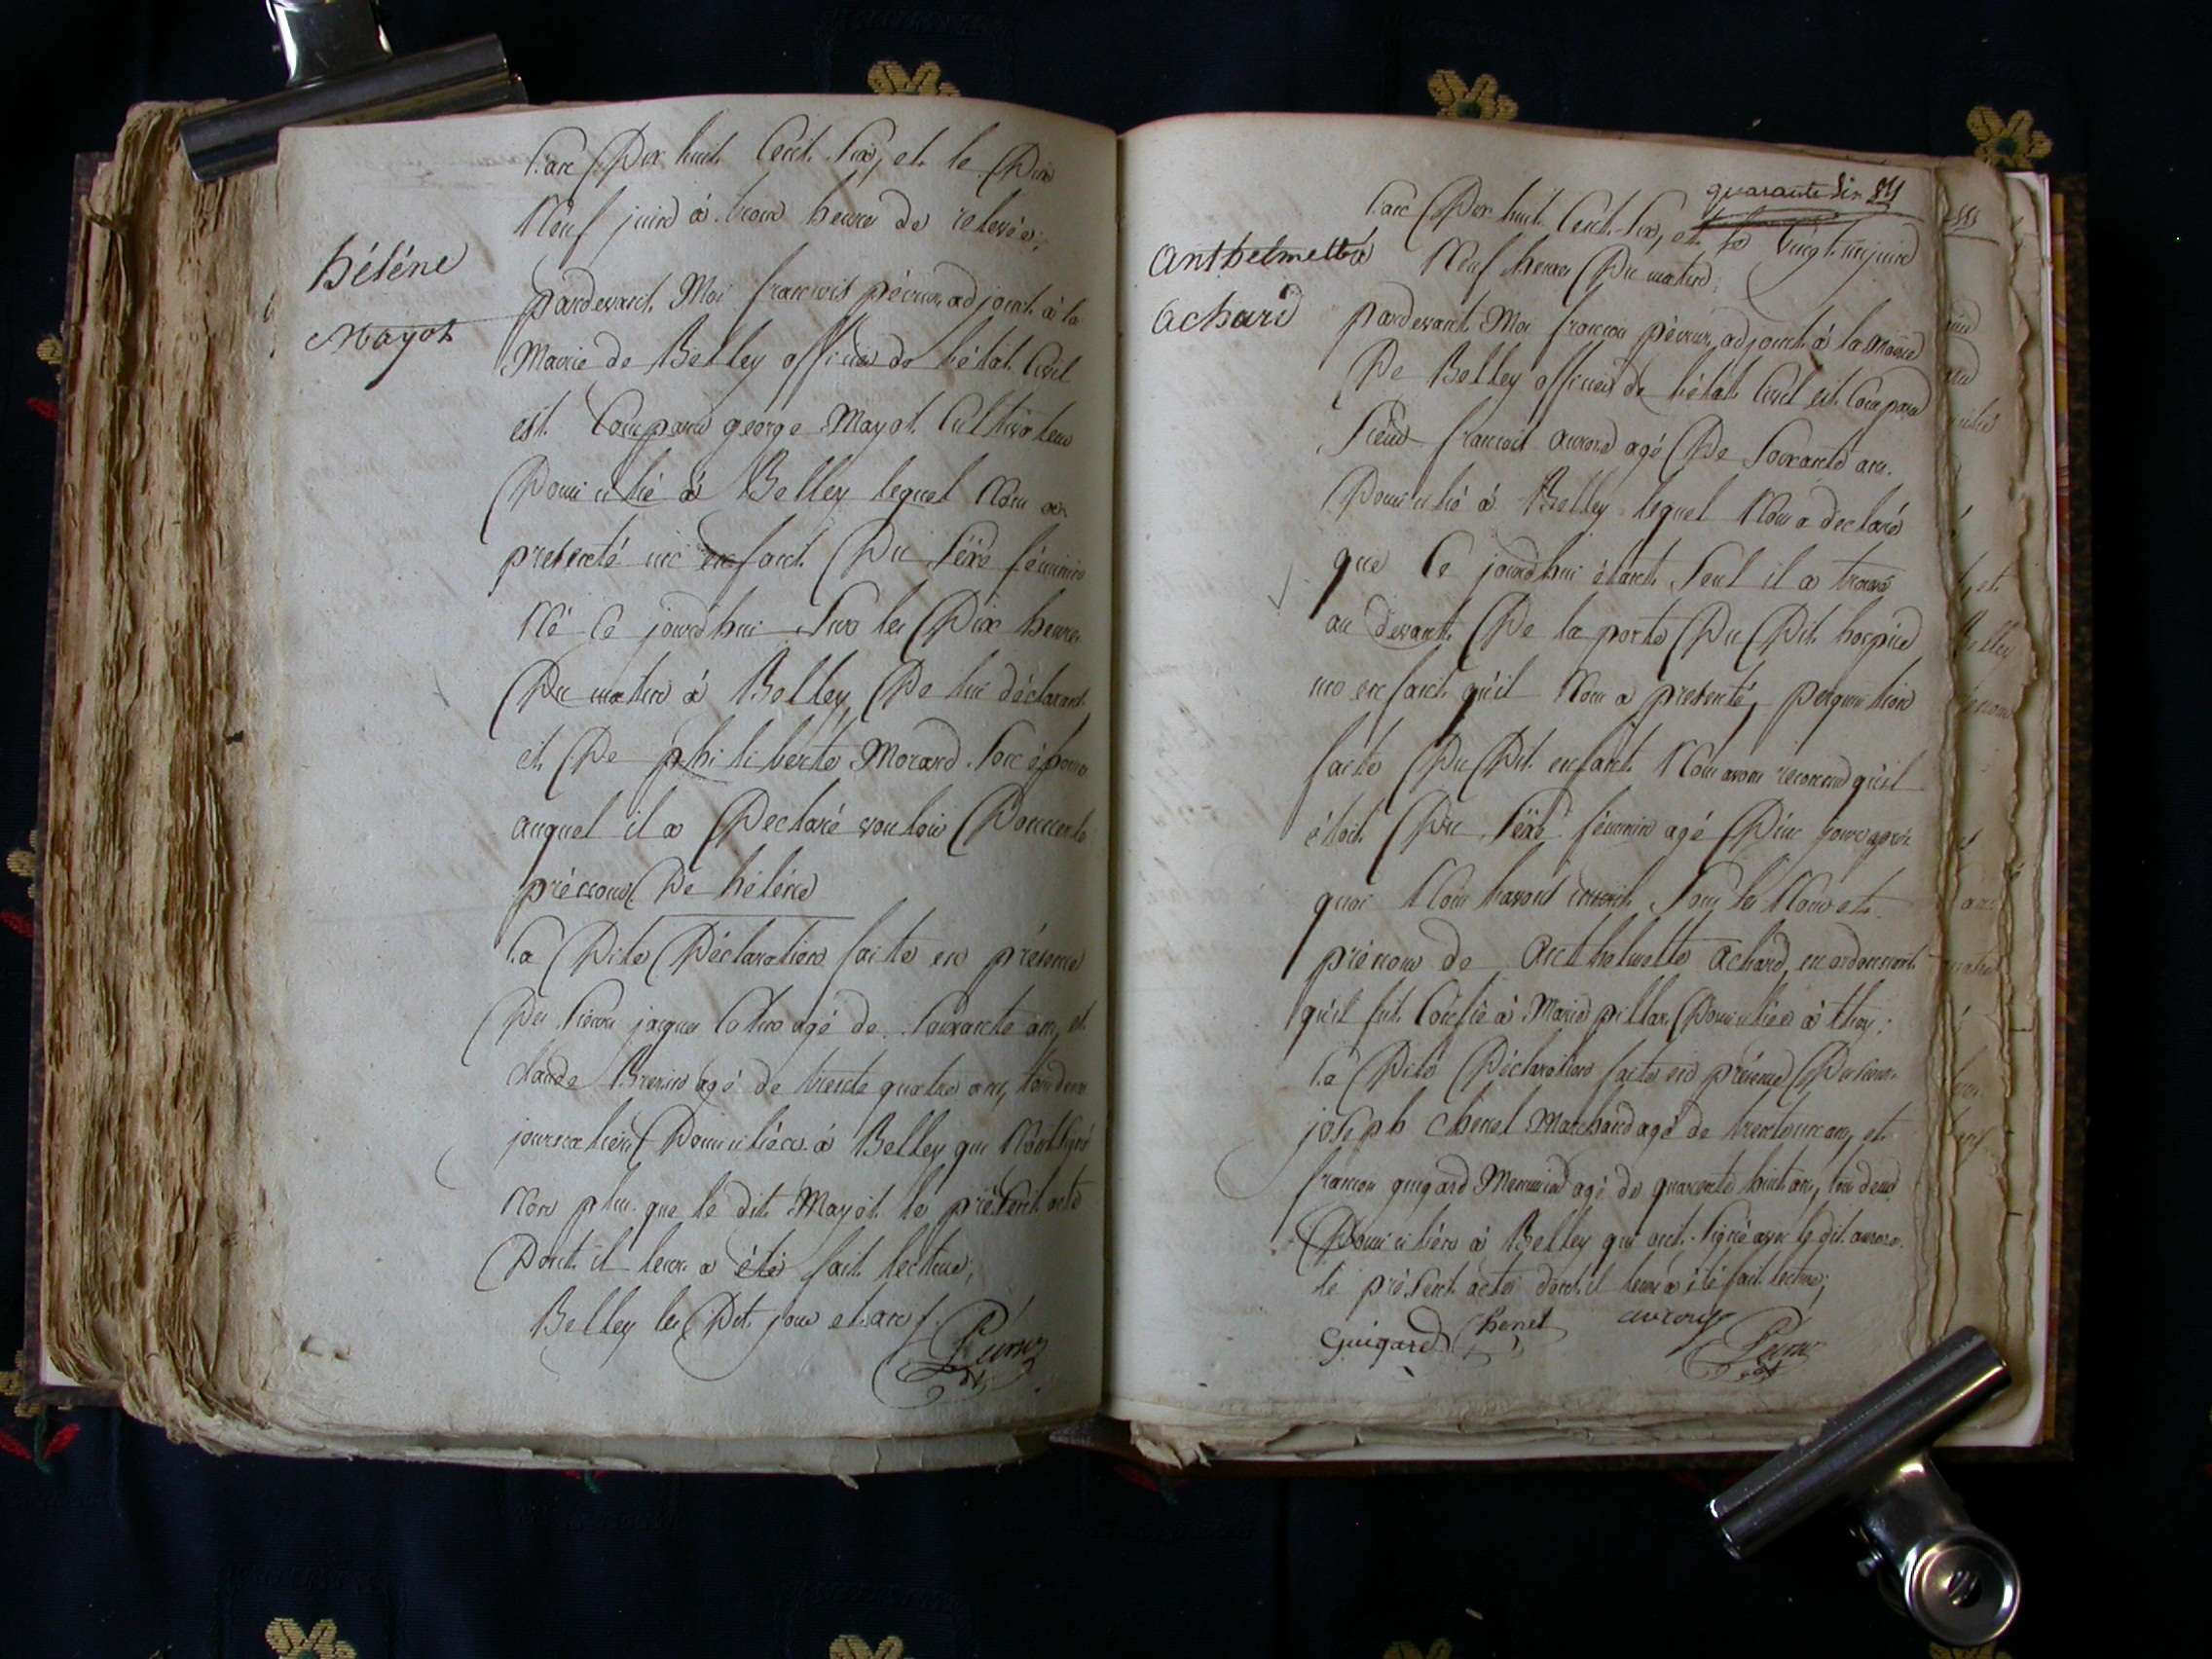 L'an Dix huit Cent Six, et le Dix
Neuf juin à trois heures de relevée;
hélène
Mayot
pardevant Moi francois péronn adjoint à la
Mairie de Belley officier de l'état Civil
est Comparu george Mayot Cultivateur
Domicilié à Belley lequel Nous a
presenté un enfant Du Séxe féminin
Né Ce jourdhui Sur les Dix heures
Du matin à Belley De lui déclarant
et De philiberte Morand Son épouse
auquel il a Declaré vouloir Donner le
prénom De hélène
La Dite Déclaration faite en présence
Des Sieurs jacques agé de Soixante ans, et
claude agé de trente quatre ans, tous deux
journaliers Domiciliés à Belley qui N'ont Signé
Non plus que le dit Mayot le présent acte
Dont il leur a été fait lecture;
Belley les Dit jour et an
quarante Six
L'an Dix huit Cent Six, et le Vingt un juin
Neuf heures Du matin;
anthelmette
achard
pardevant Moi francois péronn adjoint à la Mairie
De Belley officier de l'état Civil est Comparu
Sieur francois agé De Soixante ans
Domicilié à Belley lequel Nous a declaré
que Ce jourdhui étant Seul il a trouvé
au devant De la porte Du Dit hospice
un enfant qu'il Nous a presenté, perquisition
faite Du Dit enfant Nous avons reconnu qu'il
étoit Du Séxe féminin agé D'un jour après
quoi Nous l'avons inscrit Sous les Nom et
prénom de anthelmette achard, en ordonnant
qu'il fut Confié à Marie pillar Domiciliée à thoy;
La Dite Déclaration faite en présence Des sieurs
joseph chenet Marchand agé de trente un ans, et
francois guigard Menuisier agé de quarante huit ans, tous deux
Domiciliés à Belley qui ont Signé avec le dit
le présent acte dont il leur a été fait lecture;
Guigard Chenet